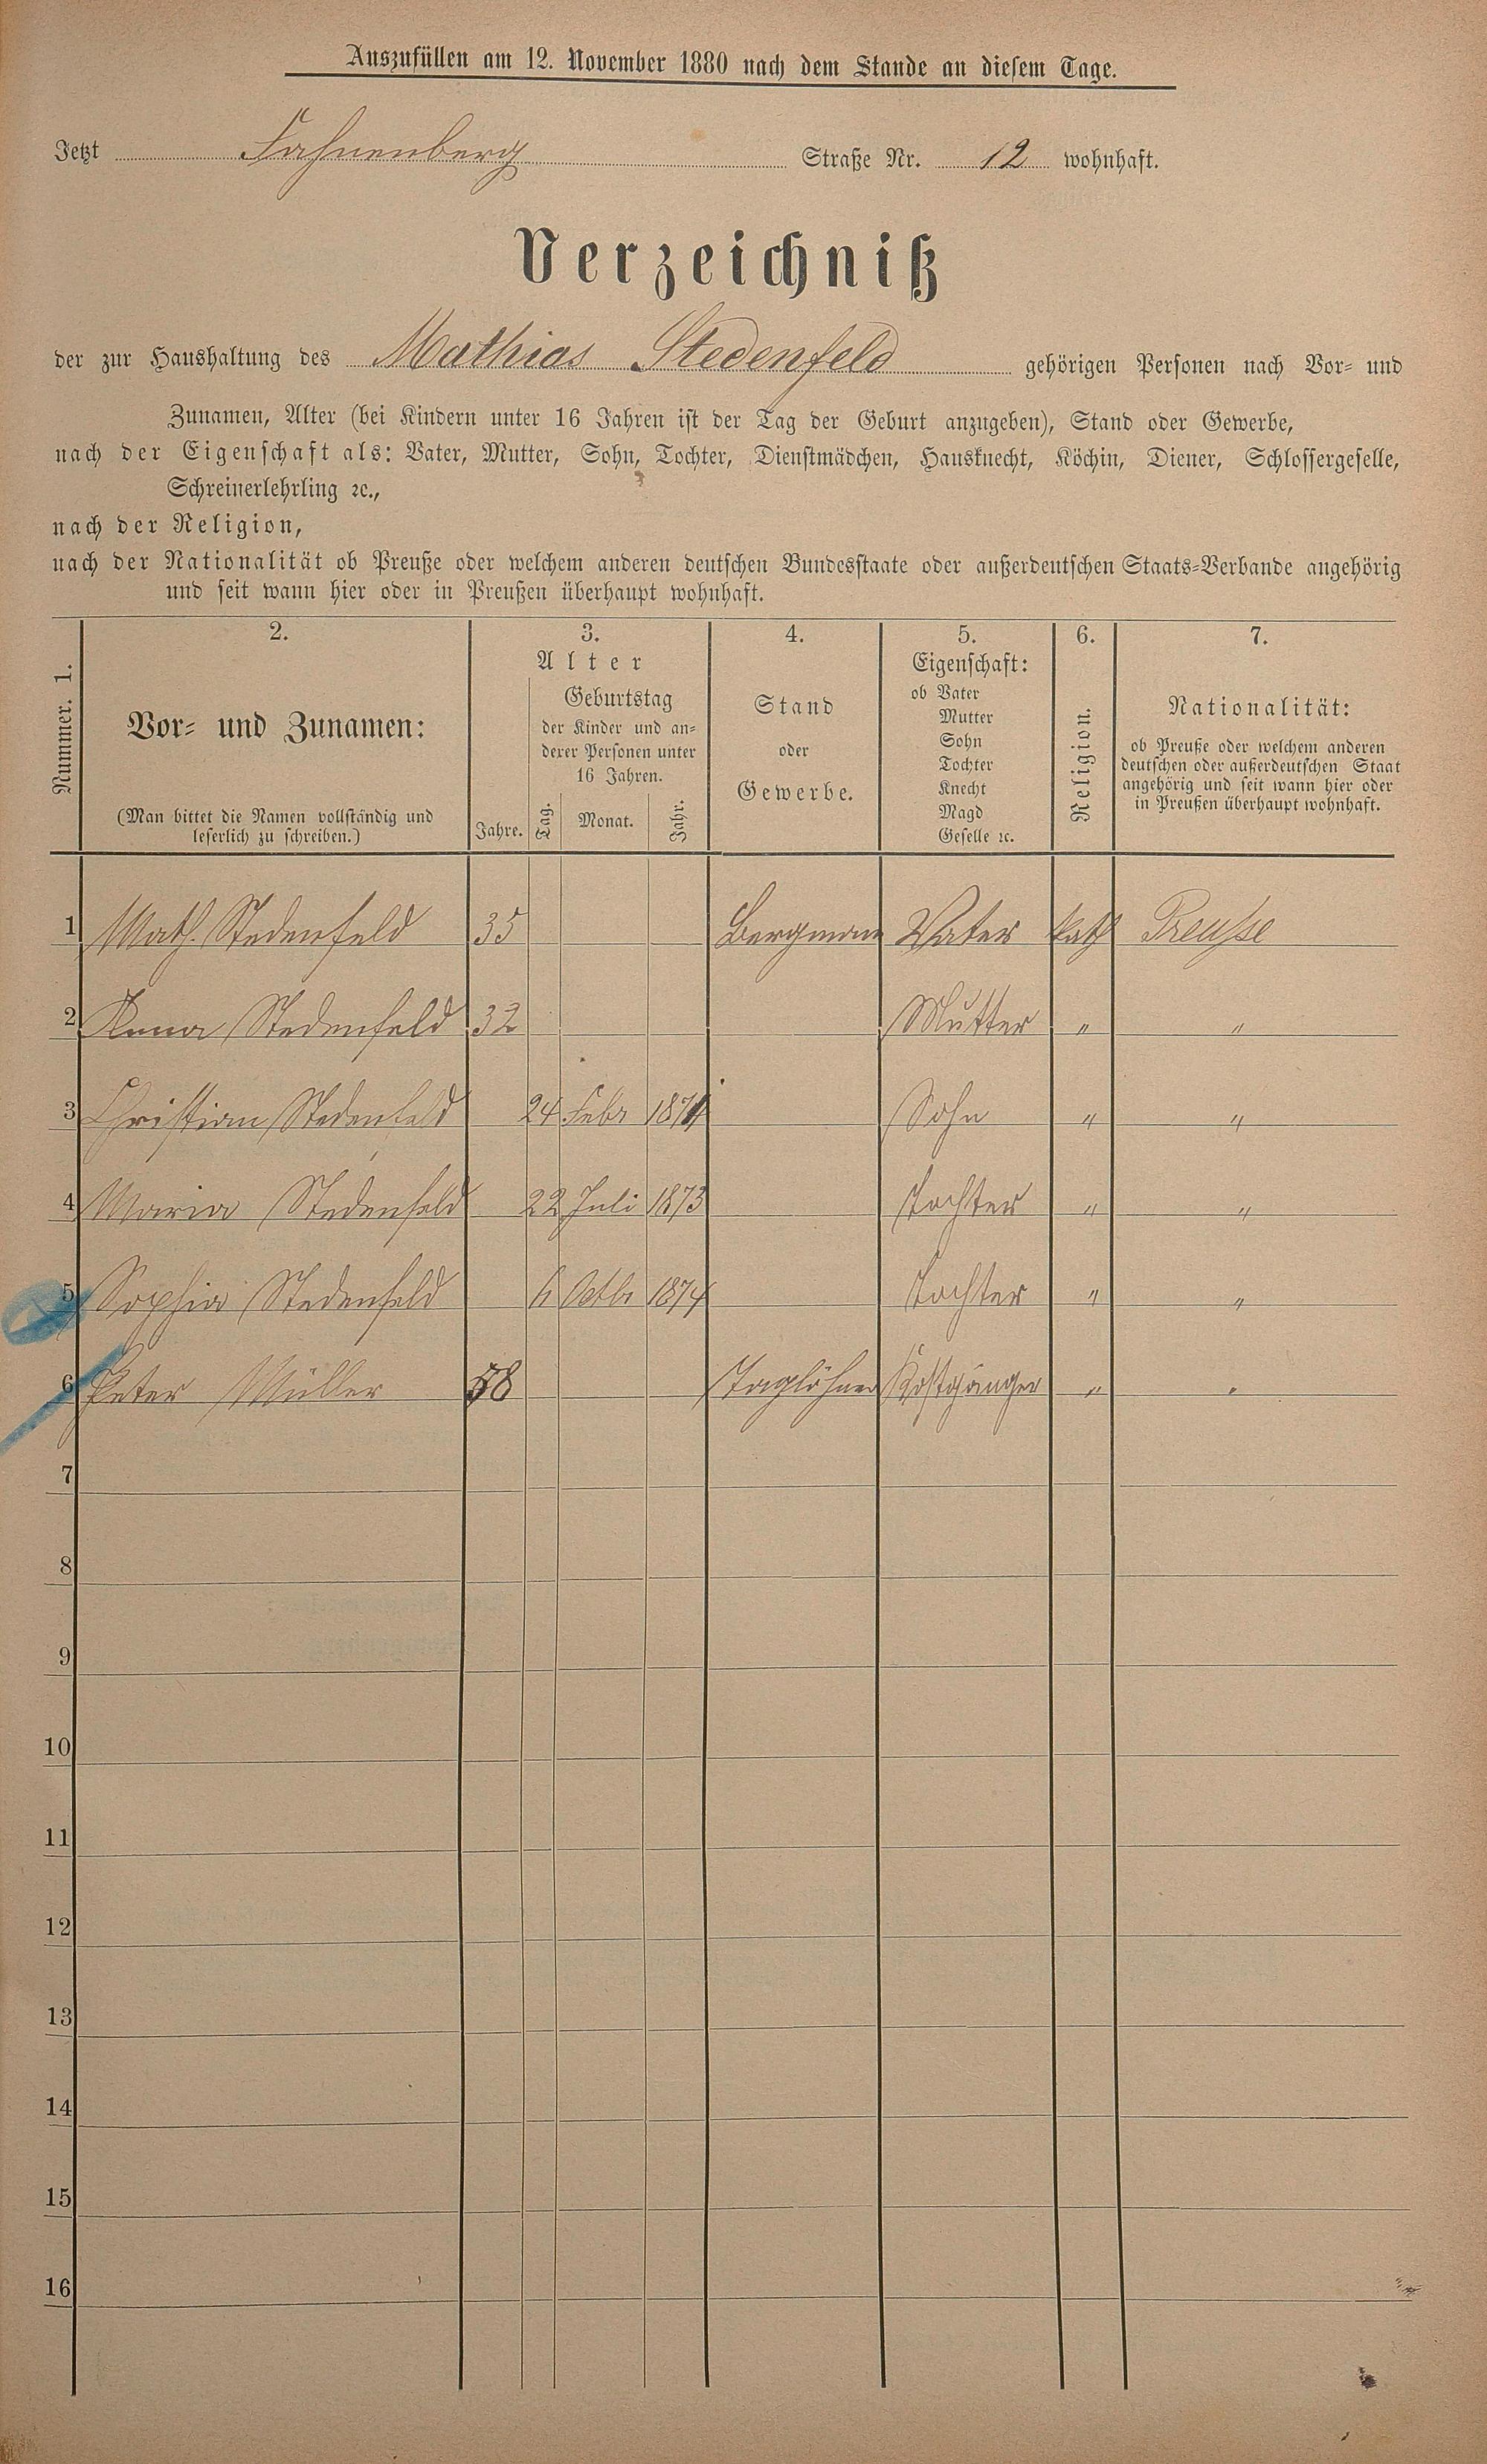 Auszufüllen am 12. November 1880 nach dem Stande an diesem Tage.
Jetzt Fahnenberg Straße Nr. 12 wohnhaft.
Verzeichniß
der zur Haushaltung des Mathias Stedenfeld gehörigen Personen nach Vor- und
Zunamen, Alter (bei Kindern unter 16 Jahren ist der Tag der Geburt anzugeben), Stand oder Gewerbe,
nach der Eigenschaft als: Vater, Mutter, Sohn, Tochter, Dienstmädchen, Hausknecht, Köchin, Diener, Schlossergeselle,
Schreinerlehrling ꝛc.,
nach der Religion,
nach der Nationalität ob Preuße oder welchem anderen deutschen Bundesstaate oder außerdeutschen Staats-Verbande angehörig
und seit wann hier oder in Preußen überhaupt wohnhaft.
Nummer. 1.
2.
Vor- und Zunamen:
(Man bittet die Namen vollständig und
leserlich zu schreiben.)
3.
Alter
Jahre.
Geburtstag
der Kinder und an-
derer Personen unter
16 Jahren.
Tag. Monat. Jahr.
4.
Stand
oder
Gewerbe.
5.
Eigenschaft:
ob Vater
Mutter
Sohn
Tochter
Knecht
Magd
Geselle ꝛc.
6.
Religion.
7.
Nationalität:
ob Preuße oder welchem anderen
deutschen oder außerdeutschen Staat
angehörig und seit wann hier oder
in Preußen überhaupt wohnhaft.
1 Math. Stedenfeld 35 Bergmann Vater kath Preuße
2 Anna Stedenfeld 32 Mutter " "
3 Christian Stedenfeld 24 Febr 1871 Sohn " "
4 Maria Stedenfeld 22 Juli 1873 Tochter " "
5 Sophia Stedenfeld Octbr 1874 Tochter " "
6 Peter Müller 58 Taglöhner Kostgänger " "
7
8
9
10
11
12
13
14
15
16